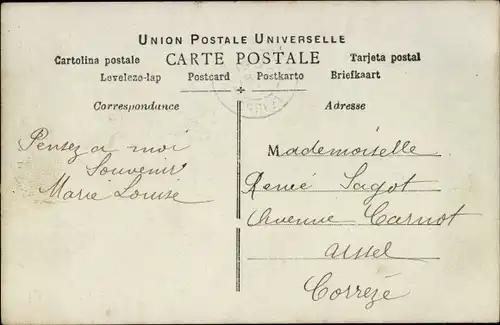 UNION POSTALE UNIVERSELLE
Cartolina postale CARTE POSTALE Tarjeta postal
Levelezo-lap Postcard Postkarto Briefkaart
Correspondance
Adresse
Pensez a moi
Souvenir
Marie Louise
Mademoiselle
Renée Sagot
Avenue Carnot
Ussel
Corrèze